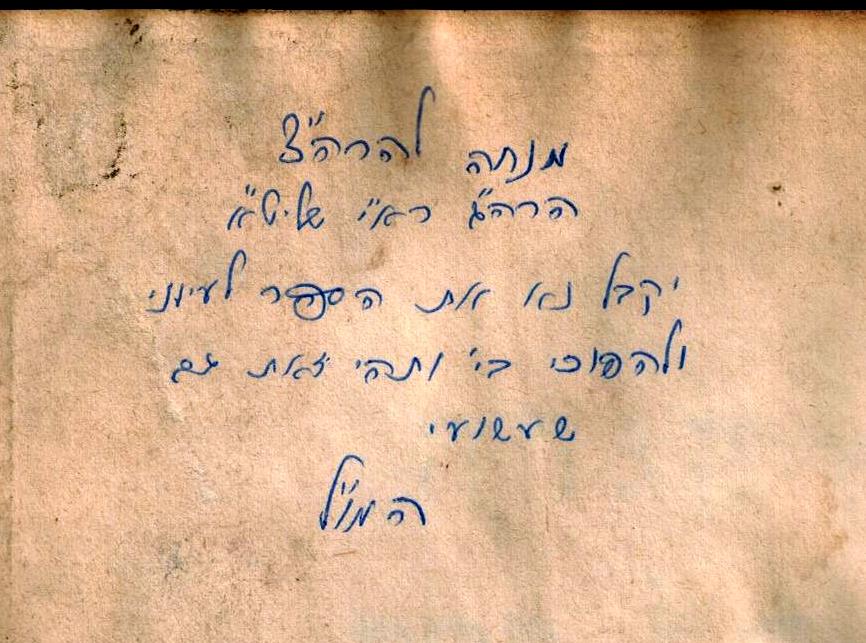 מנחה להרה"צ
הרה"ג רא"י שליט"א
יקבל נא את הספר לעיוני
ולהפוכי בי' ותהי זאת גם
שעשועי
המו"ל